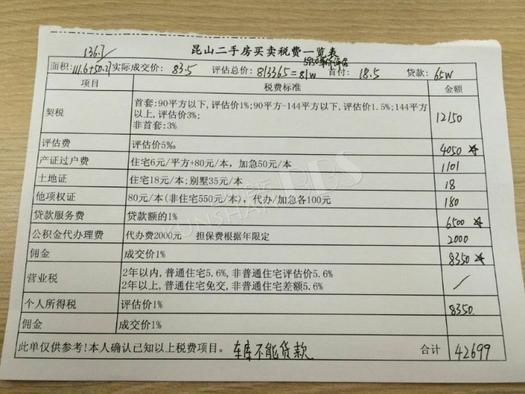 136.7
昆山二手房买卖税费一览表
面积:111.6+50.2 实际成交价: 83.5 评估总价: 813365=81w 首付: 18.5 贷款: 65W
项目 税费标准 金额
契税 首套:90平方以下,评估价1%;90平方-144平方以下,评估价1.5%;144平方
以上,评估价3%;
非首套:3% 12150
评估费 评估价5‰ 4050
产证过户费 住宅6元/平方+80元/本, 加急50元/本 1101
土地证 住宅18元/本;别墅35元/本 18
他项权证 80元/本(非住宅550元/本), 代办/加急各100元 180
贷款服务费 贷款额的1% 6500
公积金代办理费 代办费2000元 担保费根据年限定 2000
佣金 成交价1% 8350
营业税 2年以内,普通住宅5.6%,非普通住宅评估价5.6%
2年以上,普通住宅免交,非普通住宅差额5.6% /
个人所得税 评估价1% 8350
佣金 成交价1%
此单仅供参考!本人确认已知以上税费项目。 车库不能贷款 合计 42699